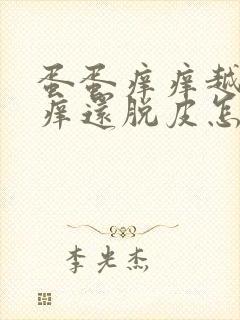 蛋蛋痒痒越
痒還脱皮怎
李光杰